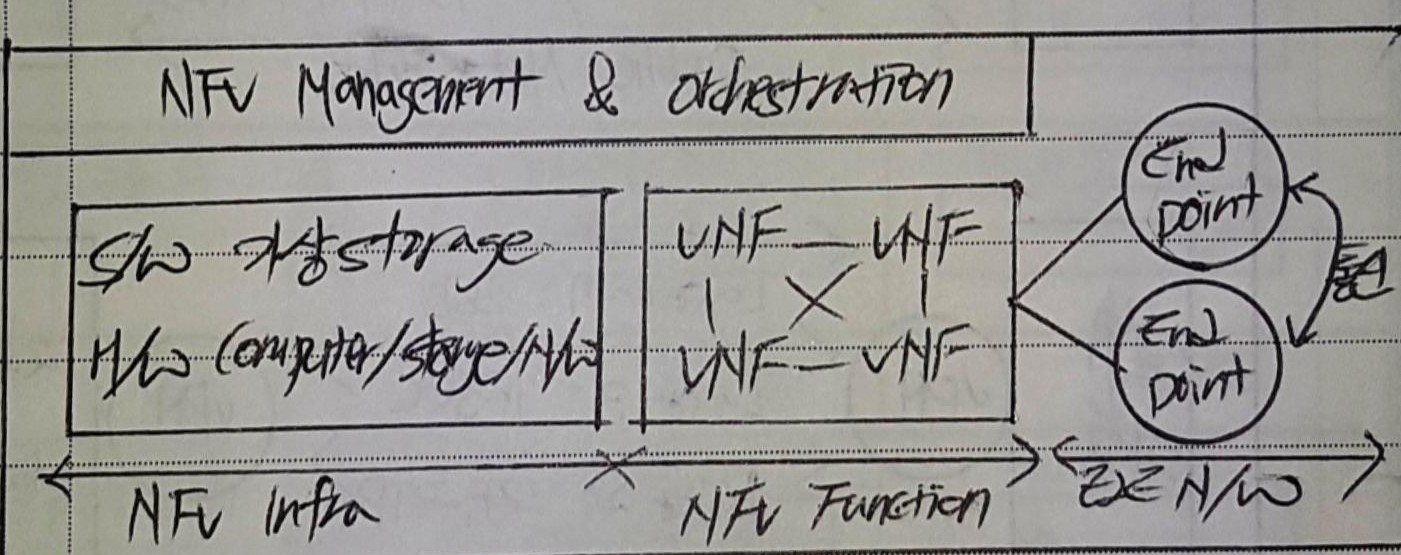 NFV Management & Orchestration
S/W 가상 storage
H/W Computer/storage/N/W
VNF VNF
VNF VNF
End
point
End
point
NFV Infra
NFV Function
E2E N/W